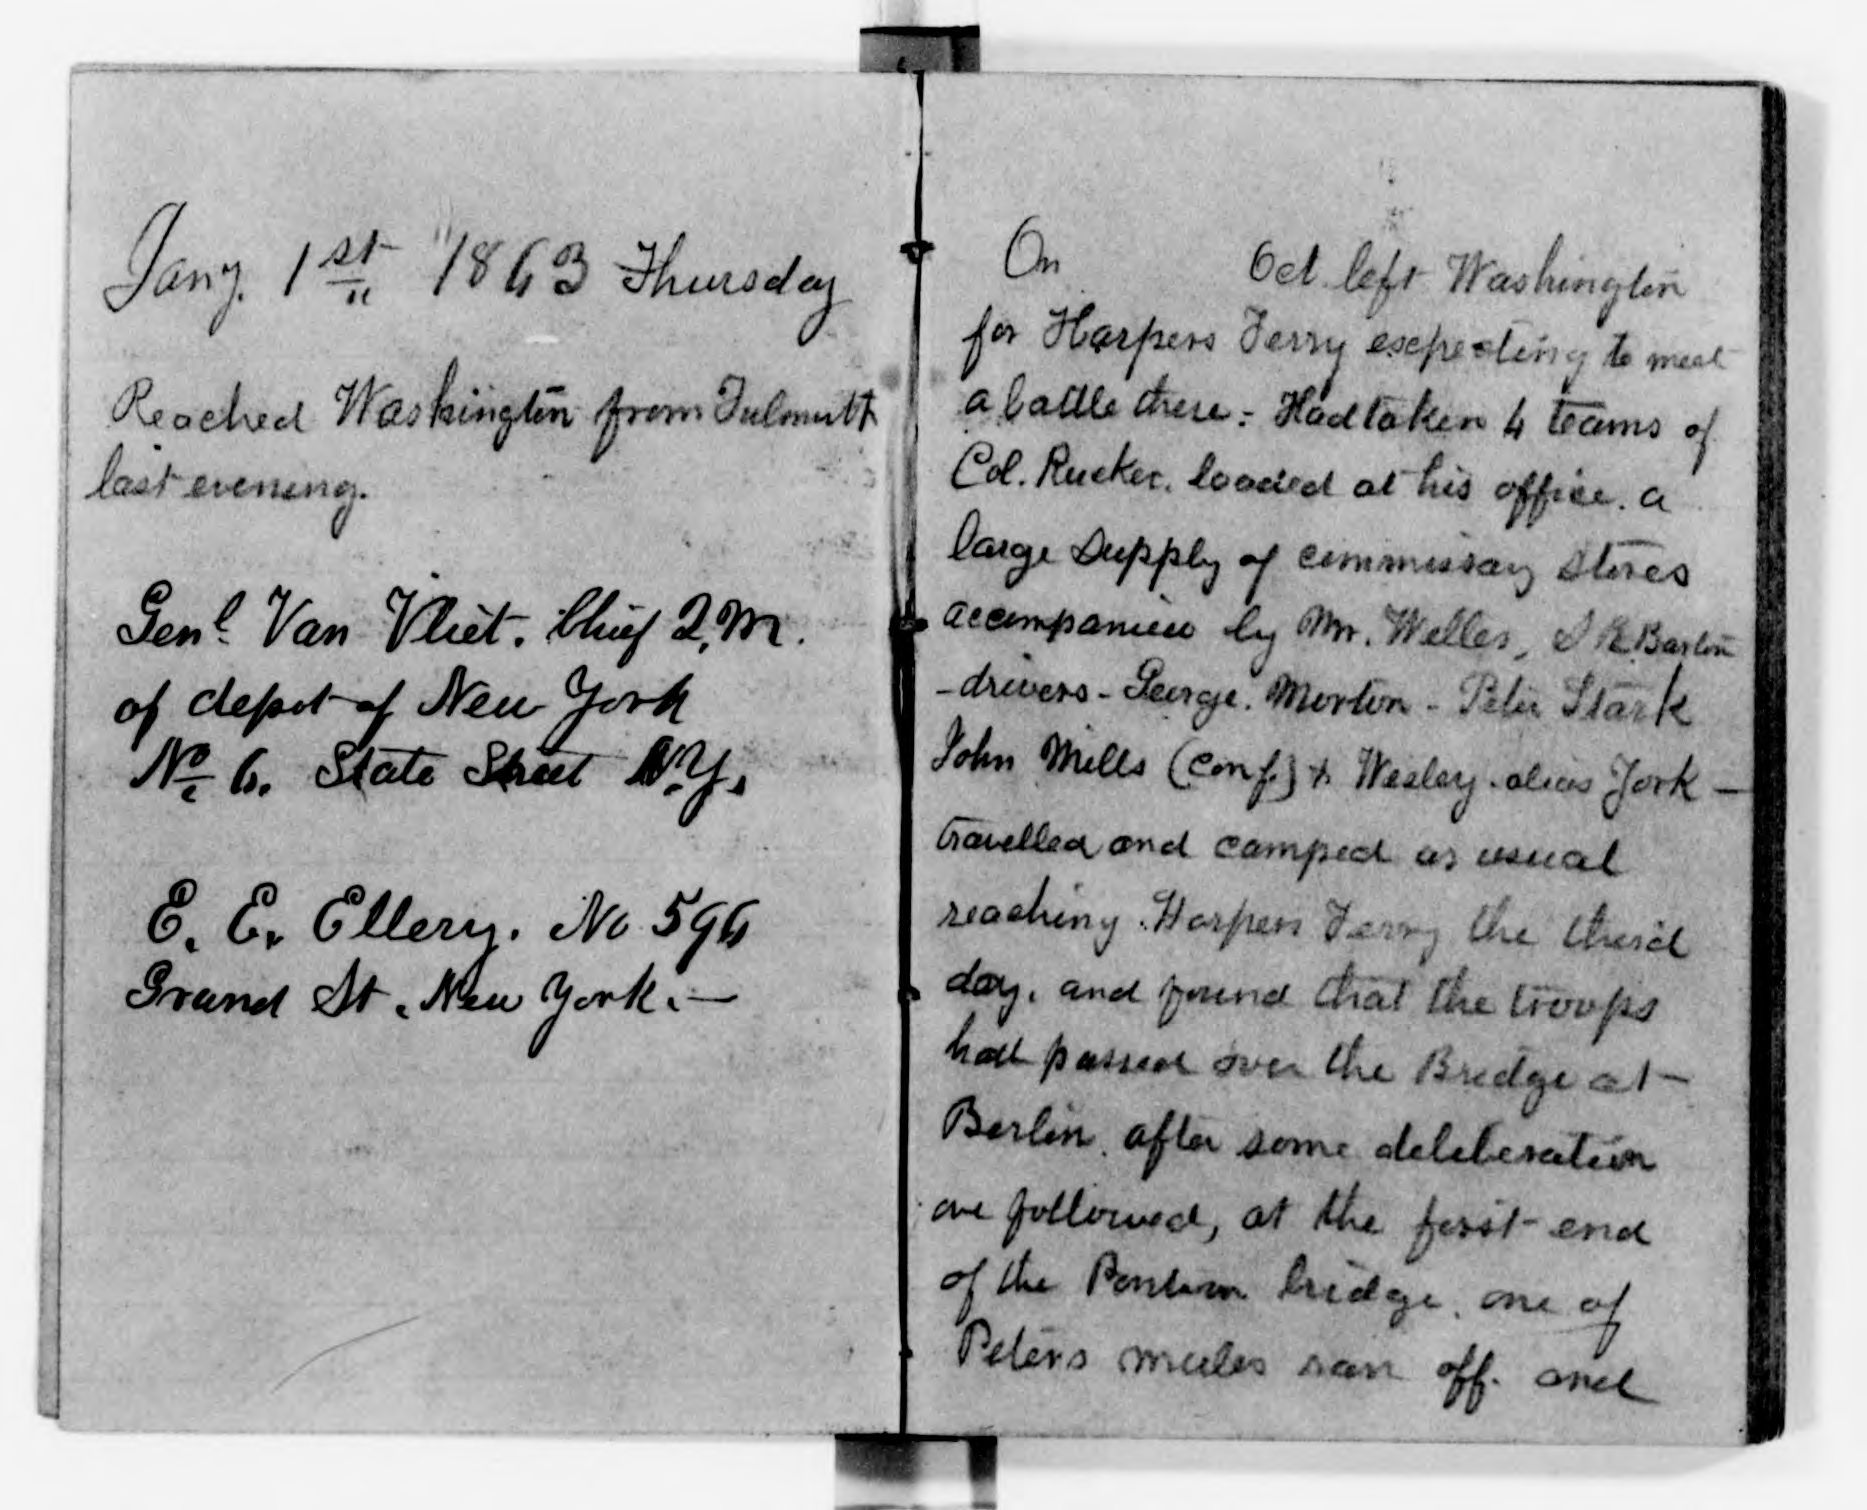 Jany. 1st 1863 Thursday
Reached Washington from Falmouth
last evening.
Genl Van Vliet. Chief Q.M.
of depot of New York
No 6. State Street N.Y.
E. E. Ellery. No 596
Grand St. New York. —
On Oct. left Washington
for Harpers Ferry expecting to meet
a battle there - Had taken 4 teams of
Col. Rucker. loaded at his office. a
large supply of commissary stores
accompanied by Mr. Welles, S R Barton
- drivers - George. Morton - Peter Stark
John Mills (Conf.) & Wesley. alias York —
travelled and camped as usual
reaching Harpers Ferry the third
day. and found that the troops
had passed over the Bridge at —
Berlin. after some deleberation
we followed, at the first end
of the Pontoon bridge. one of
Peters mules ran off. and